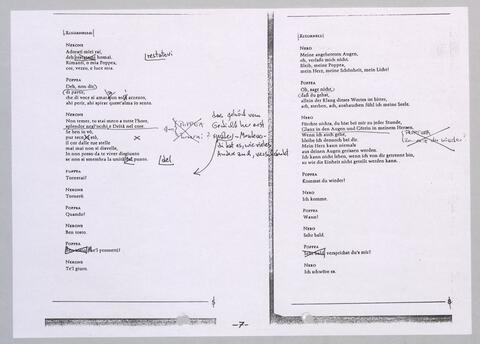 [RITORNELLO]
NERONE
Adorati miei rai,
deh restatevi homai.
Rimanti, o mia Poppea,
cor, vezzo, e luce mia.
POPPEA
Deh, non dir
di partir,
che di voce si amara a un accento,
ahi perir, ahi spirar quest'alma io sento.
NERONE
Non temer, tu stai meco a tutte l'hore,
splendor negl'occhi e Deità nel core.
Se ben io vò,
pur teco
il cor dalle tue stelle
mai mai non si disvelle.
In non posso da te viver disgiunto
se non si smembra la unità
punto.
POPPEA
Tornerai?
NERONE
Tornerò.
POPPEA
Quando?
NERONE
Ben tosto.
POPPEA
me'l prometti?
NERONE
Te'l giuro.
restatevi
del
das gehört vom
[RITORNELLO]
NERO
Meine angebeteten Augen,
oh, verlaßt mich nicht.
Bleib, meine Poppea,
mein Herz, meine Schönheit, mein Licht!
POPPEA
Oh, sage nicht,
daß du gehst,
allein der Klang dieses Wortes ist bitter,
ach, sterben, ach, aushauchen fühl ich meine Seele.
NERO
Fürchte nichts, du bist bei mir zu jeder Stunde,
Glanz in den Augen und Göttin in meinem Herzen.
Wenn ich auch gehe,
bleibe ich dennoch bei dir.
Mein Herz kann niemals
aus deinen Augen gerissen werden.
Ich kann nicht leben, wenn ich von dir getrennt bin,
so wie die Einheit nicht geteilt werden kann.
POPPEA
Kommst du wieder?
NERO
Ich komme.
POPPEA
Wann?
NERO
Sehr bald.
POPPEA
Sehr bald, versprichst du's mir?
NERO
Ich schwöre es.
-7-